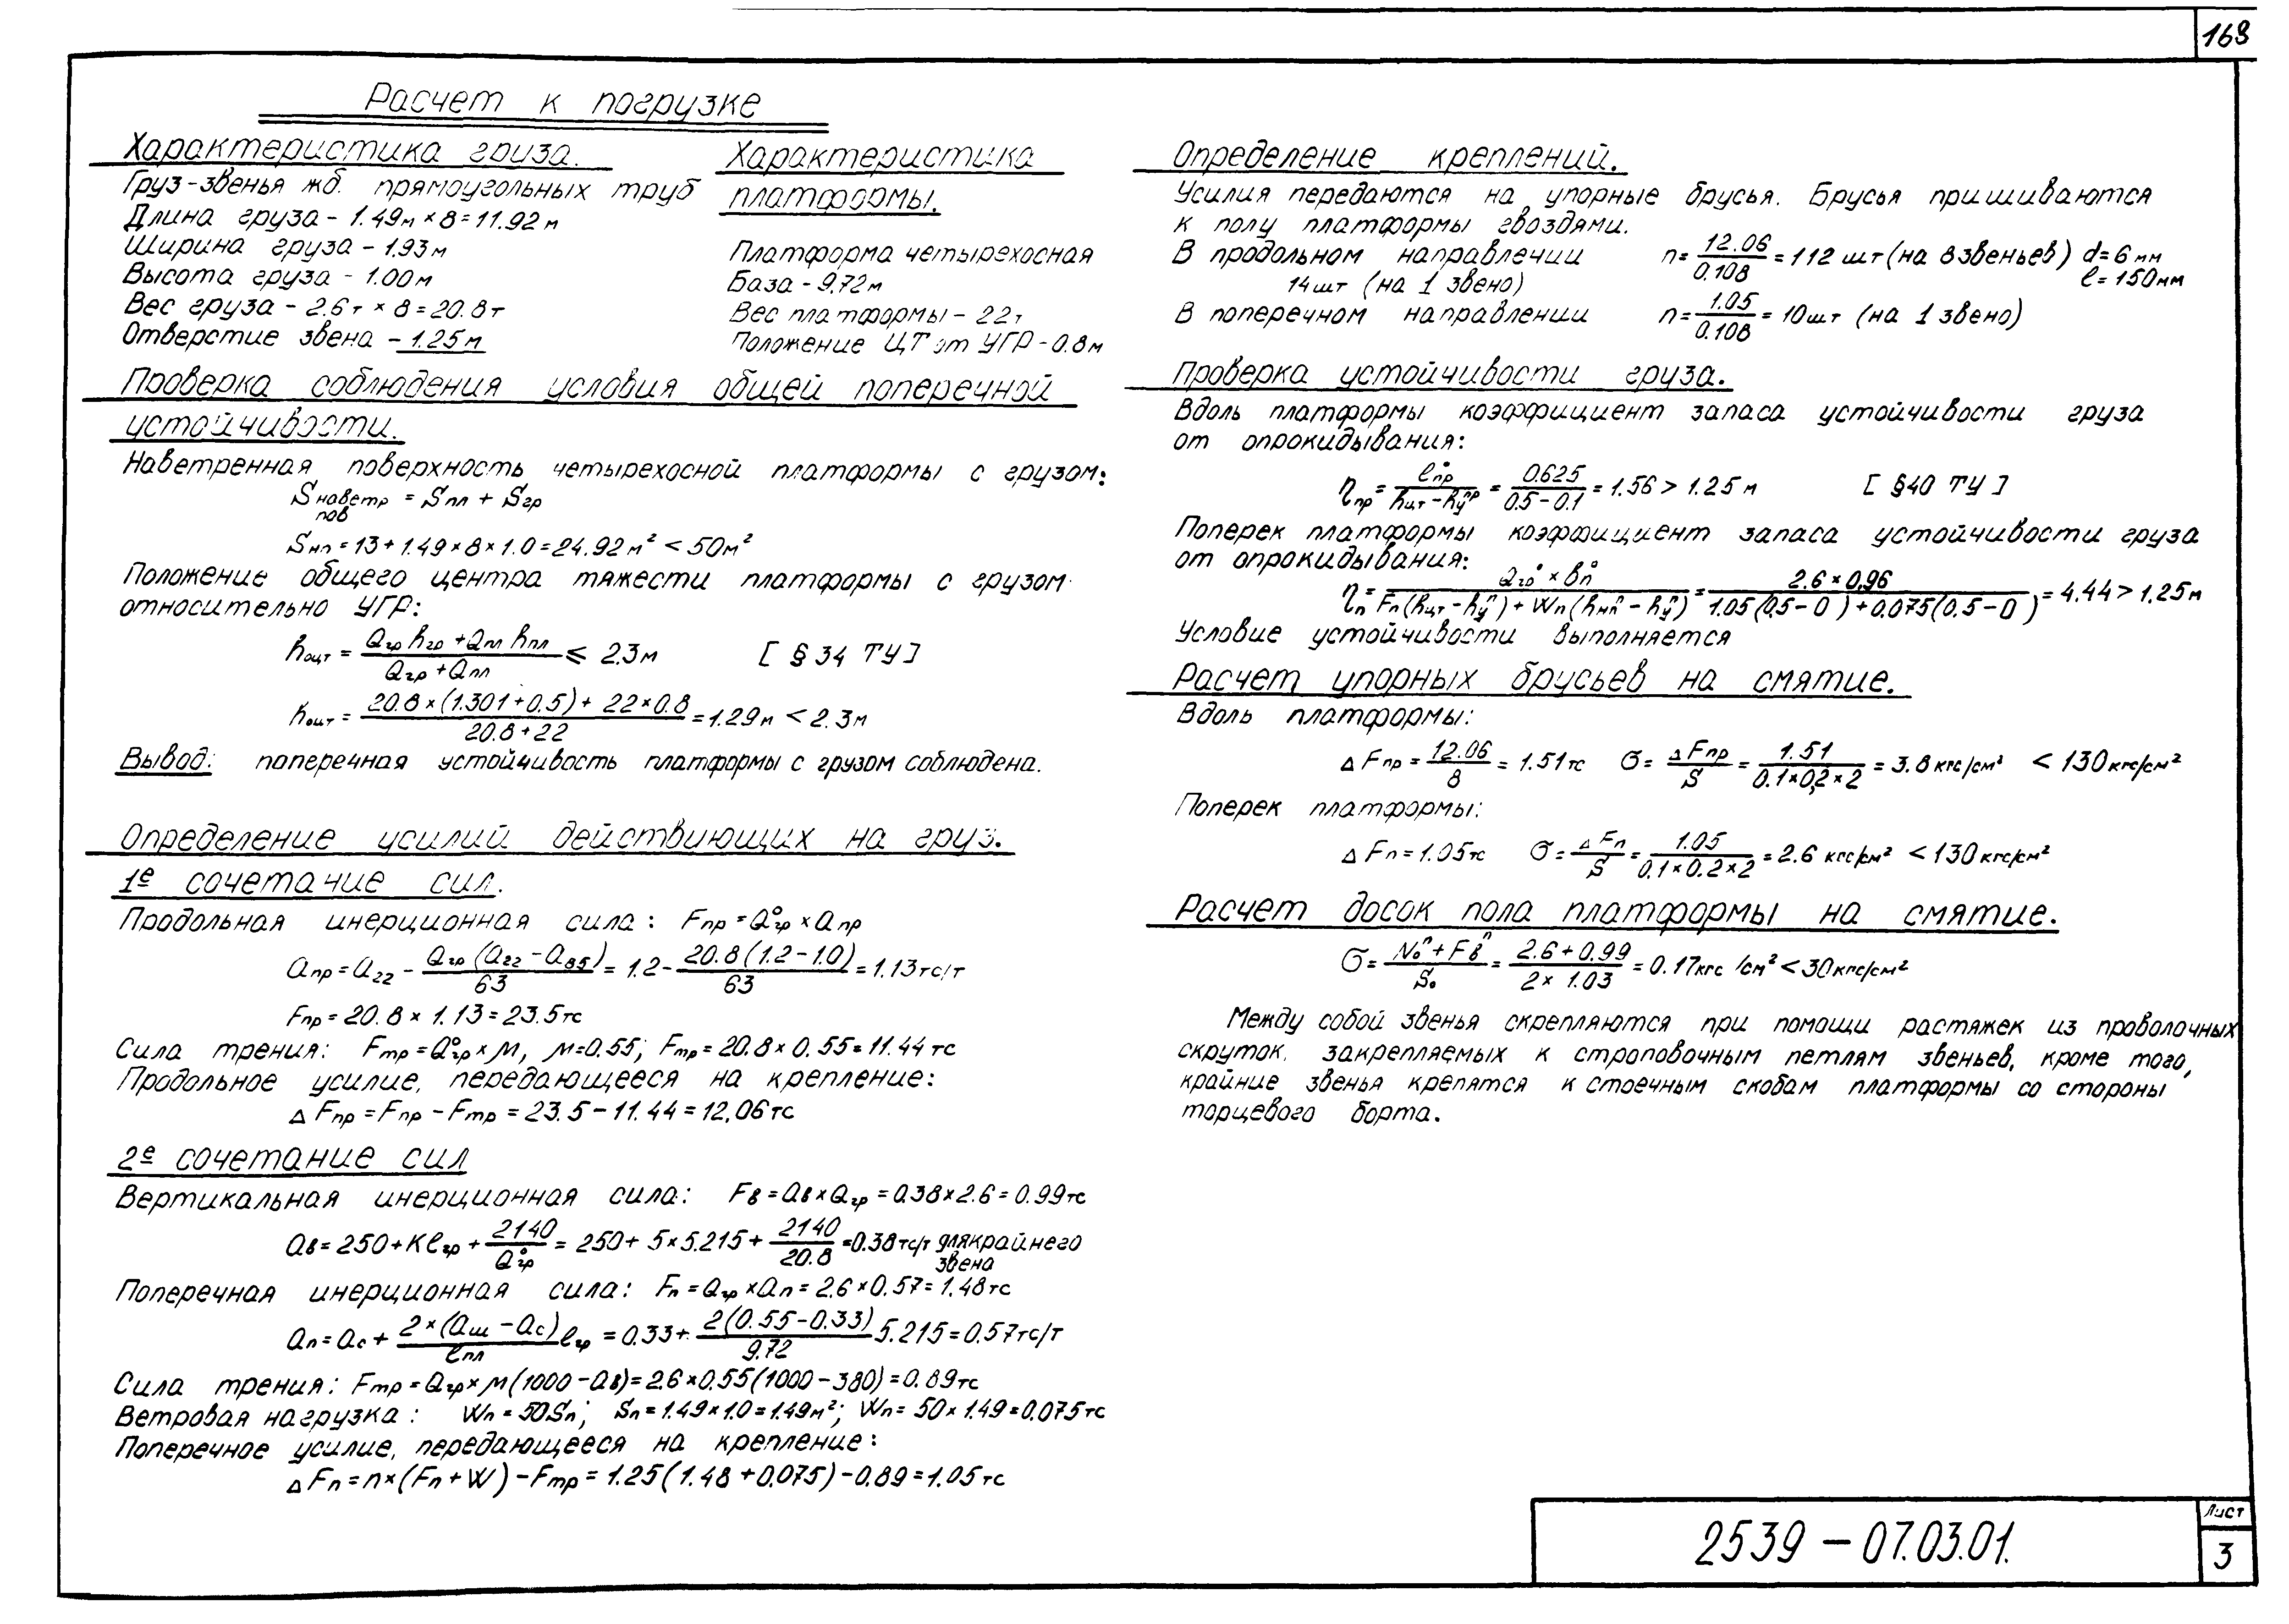 168
Расчет к погрузке
Характеристика груза.
Груз-звенья жб. прямоугольных труб
Длина груза - 1.49м × 8 = 11.92 м
Ширина груза - 1.93 м
Высота груза - 1.00 м
Вес груза - 2.6 т × 8 = 20.8 т
Отверстие звена - 1.25 м
Характеристика
платформы.
Платформа четырехосная
База - 9.72 м
Вес платформы - 22 т
Положение ЦТ от УГР - 0.8 м
Проверка соблюдения условия общей поперечной
устойчивости.
Наветренная поверхность четырехосной платформы с грузом:
Sнаветр пов = Sпл + Sгр
Sнп = 13 + 1.49 × 8 × 1.0 = 24.92 м² < 50 м²
Положение общего центра тяжести платформы с грузом
относительно УГР:
hоцт = (Qгр hгр + Qпл hпл) / (Qгр + Qпл) ≤ 2.3 м [ § 34 ТУ ]
hоцт = (20.8 × (1.301 + 0.5) + 22 × 0.8) / (20.8 + 22) = 1.29 м < 2.3 м
Вывод: поперечная устойчивость платформы с грузом соблюдена.
Определение усилий действующих на груз.
1е сочетание сил.
Продольная инерционная сила: Fпр = Q°гр × aпр
aпр = a22 - Qгр (a22 - a85) / 63 = 1.2 - 20.8 (1.2 - 1.0) / 63 = 1.13 тс/т
Fпр = 20.8 × 1.13 = 23.5 тс
Сила трения: Fтр = Q°гр × М, М = 0.55; Fтр = 20.8 × 0.55 = 11.44 тс
Продольное усилие, передающееся на крепление:
Δ Fпр = Fпр - Fтр = 23.5 - 11.44 = 12.06 тс
2е сочетание сил
Вертикальная инерционная сила: Fв = aв × Qгр = 0.38 × 2.6 = 0.99 тс
aв = 250 + Kℓгр + 2140 / Q°гр = 250 + 5 × 5.215 + 2140 / 20.8 = 0.38 тс/т для крайнего
звена
Поперечная инерционная сила: Fп = Qгр × aп = 2.6 × 0.57 = 1.48 тс
aп = aс + 2 × (aш - aс) / ℓпл ℓгр = 0.33 + 2 (0.55 - 0.33) / 9.72 5.215 = 0.57 тс/т
Сила трения: Fтр = Qгр × М (1000 - aв) = 2.6 × 0.55 (1000 - 380) = 0.89 тс
Ветровая нагрузка: Wп = 50Sп; Sп = 1.49 × 1.0 = 1.49 м²; Wп = 50 × 1.49 = 0.075 тс
Поперечное усилие, передающееся на крепление:
Δ Fп = n × (Fп + W) - Fтр = 1.25 (1.48 + 0.075) - 0.89 = 1.05 тс
Определение креплений.
Усилия передаются на упорные брусья. Брусья пришиваются
к полу платформы гвоздями.
В продольном направлении n = 12.06 / 0.108 = 112 шт (на 8 звеньев) d = 6 мм
14 шт (на 1 звено) ℓ = 150 мм
В поперечном направлении n = 1.05 / 0.108 = 10 шт (на 1 звено)
Проверка устойчивости груза.
Вдоль платформы коэффициент запаса устойчивости груза
от опрокидывания:
ηпр = ℓ°пр / (hцт - hупр) = 0.625 / (0.5 - 0.1) = 1.56 > 1.25 м [ §40 ТУ ]
Поперек платформы коэффициент запаса устойчивости груза
от опрокидывания:
ηп = Qгр° × в°п / (Fп (hцт - hуп) + Wп (hнпп - hуп)) = 2.6 × 0.96 / (1.05 (0.5 - 0) + 0.075 (0.5 - 0)) = 4.44 > 1.25 м
Условие устойчивости выполняется
Расчет упорных брусьев на смятие.
Вдоль платформы:
Δ Fпр = 12.06 / 8 = 1.51 тс σ = Δ Fпр / S = 1.51 / (0.1 × 0.2 × 2) = 3.8 кгс/см² < 130 кгс/см²
Поперек платформы:
Δ Fп = 1.05 тс σ = Δ Fп / S = 1.05 / (0.1 × 0.2 × 2) = 2.6 кгс/см² < 130 кгс/см²
Расчет досок пола платформы на смятие.
σ = (Nоп + Fвп) / Sо = (2.6 + 0.99) / (2 × 1.03) = 0.17 кгс/см² < 30 кгс/см²
Между собой звенья скрепляются при помощи растяжек из проволочных
скруток, закрепляемых к строповочным петлям звеньев, кроме того,
крайние звенья крепятся к стоечным скобам платформы со стороны
торцевого борта.
2539 - 07.03.01.
Лист
3